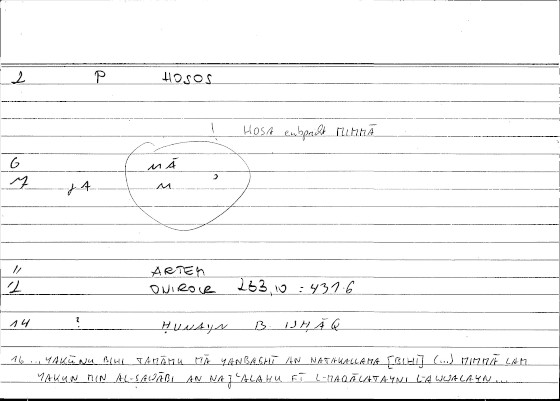 2 P HOSOS
! HOSA MIMMĀ
6 MĀ
7 JA M ,
" ARTEM
12 ONIROCR 263,10 : 431.6
14 : ḤUNAYN B ISḤĀQ
16 ... YAKŪNU BIHI TAMĀMU MĀ YANBAGHĪ AN NATAKALLAMA [BIHI] (...) MIMMĀ LAM
YAKUN MIN AL-ṢAWĀBI AN NAJʿALAHU FĪ L-MAQĀLATAYNI L-AWWALAYN ...